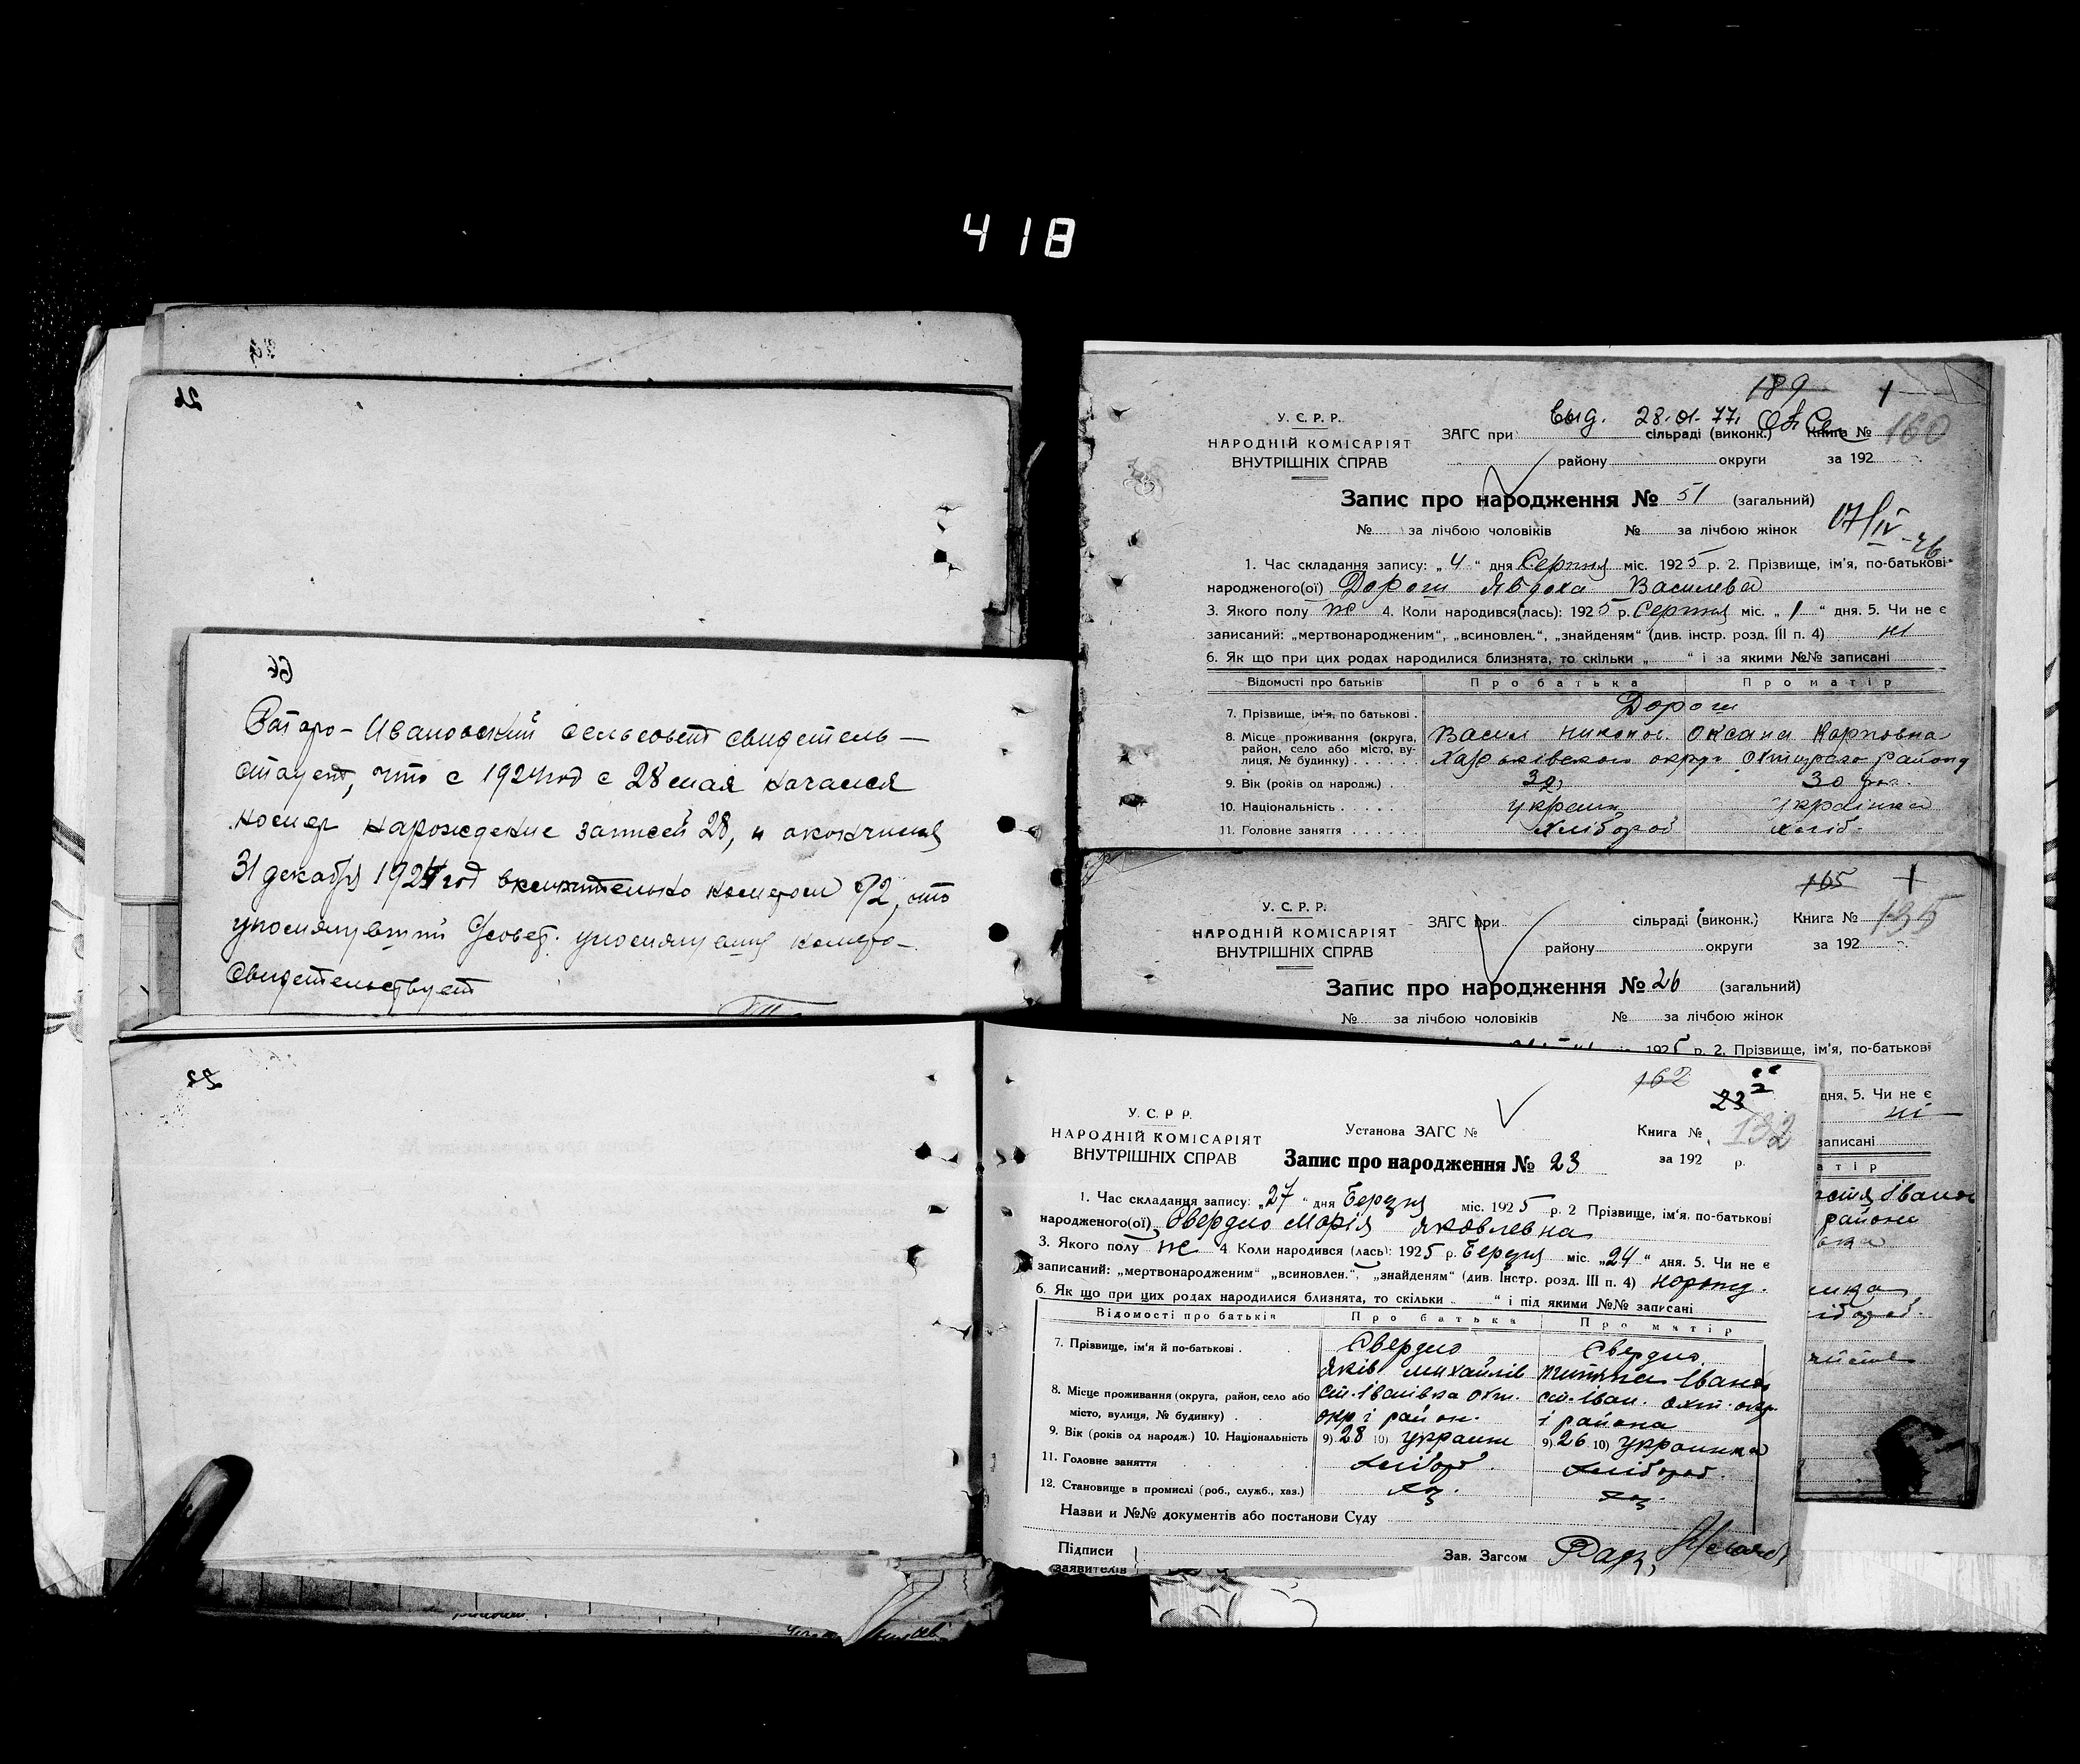 418
26
66
Старо-Ивановский сельсовет свидетель-
ствует, что с 1924 год с 28 мая начался
номер нарождение записей 28, и окончился
31 декабря 1924 год включительно номером 92, что
упомянутый
номера
свидетельствует
22
189
1
У.С.Р.Р.
НАРОДНІЙ КОМІСАРІЯТ
ВНУТРІШНІХ СПРАВ
выд. 28.01.77.
ЗАГС при сільраді (виконк.) Книга № 160
району округи за 192
Запис про народження № 51 (загальний)
№ за лічбою чоловіків № за лічбою жінок
07/IV-76
1. Час складання запису: „4“ дня Серпня міс. 1925 р. 2. Прізвище, ім'я, по-батькові
народженого(ої) Дорош Явдоха Василева
3. Якого полу ж 4. Коли народився(лась): 1925 р. Серпня міс. „1“ дня. 5. Чи не є
записаний: „мертвонародженим“, „всиновлен.“, „знайденям“ (див. інстр. розд. III п. 4) ні
6. Як що при цих родах народилися близнята, то скільки „ “ і за якими №№ записані
Відомості про батьків Про батька Про матір
7. Прізвище, ім'я, по батькові . Дорош
Васил Никонов. Оксана Карповна
8. Місце проживання (округа,
район, село або місто, ву-
лиця, № будинку) . . . . . . Харьківского округ Охтирского району
9. Вік (років од народж.) . . 32 30
10. Національність . . . . . украин українка
11. Головне заняття . . . . . . хлібороб хліб.
165
1
У.С.Р.Р.
НАРОДНІЙ КОМІСАРІЯТ
ВНУТРІШНІХ СПРАВ
ЗАГС при сільраді (виконк.) Книга № 135
району округи за 192
Запис про народження № 26 (загальний)
№ за лічбою чоловіків № за лічбою жінок
1925 р. 2. Прізвище, ім'я, по-батькові
дня. 5. Чи не є
ні
записані
атір
Іванов
района
162
23
2
У.С.Р.Р.
НАРОДНІЙ КОМІСАРІЯТ
ВНУТРІШНІХ СПРАВ
Установа ЗАГС № Книга № 132
Запис про народження № 23 за 192 р.
1. Час складання запису: „27“ дня Березня міс. 1925 р. 2 Прізвище, ім'я, по-батькові
народженого(ої) Свердло Марія Яковлевна
3. Якого полу ж 4 Коли народився (лась): 1925 р. Березня міс. „24“ дня. 5. Чи не є
записаний: „мертвонародженим“ „всиновлен.“, „знайденям“ (див. Інстр. розд. III п. 4)
6. Як що при цих родах народилися близнята, то скільки „ “ і під якими №№ записані
Відомості про батьків Про батька Про матір
7. Прізвище, ім'я й по-батькові . Свердло Свердло
Яків Михайлів Іванов
8. Місце проживання (округа, район, село або ст. Іванівка Охт. ст. Іван. Охт. окр.
місто, вулиця, № будинку) . окр і район. і района
9. Вік (років од народж.) 10. Національність 9) 28 10) украин 9) 26 10) украинка
11. Головне заняття хлібороб. хлібороб.
12. Становище в промислі (роб., служб., хаз.) хаз. хаз.
Назви и №№ документів або постанови Суду
Підписи
заявителів
Зав. Загсом